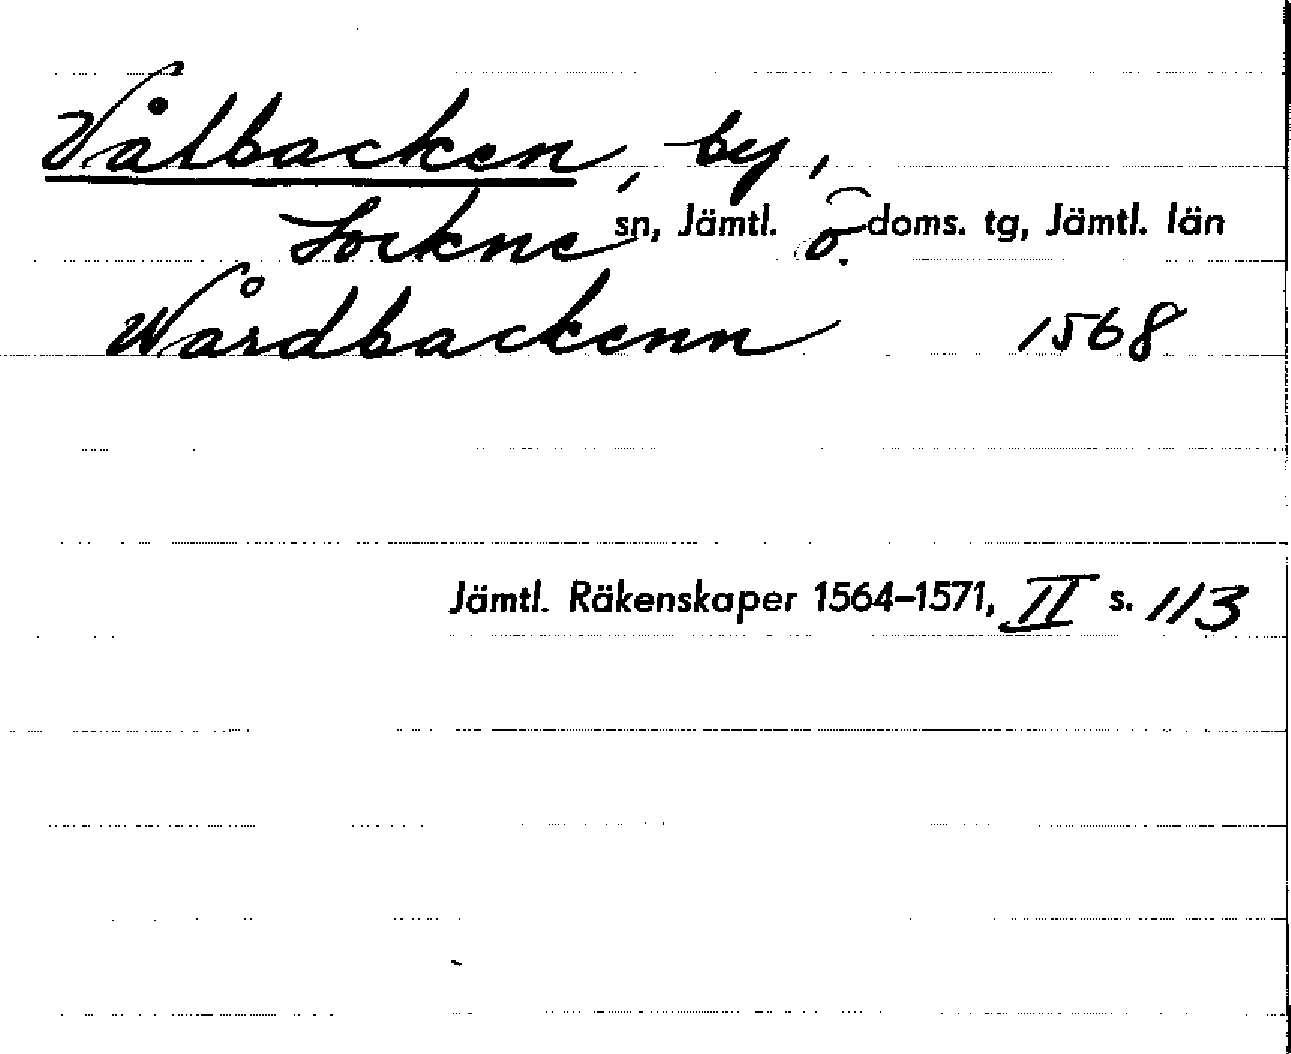 Vålbacken, by,
Lockne sn, Jämtl. ö. doms. tg, Jämtl. län
Wårdbackenn 1568
Jämtl. Räkenskaper 1564–1571, II s. 113